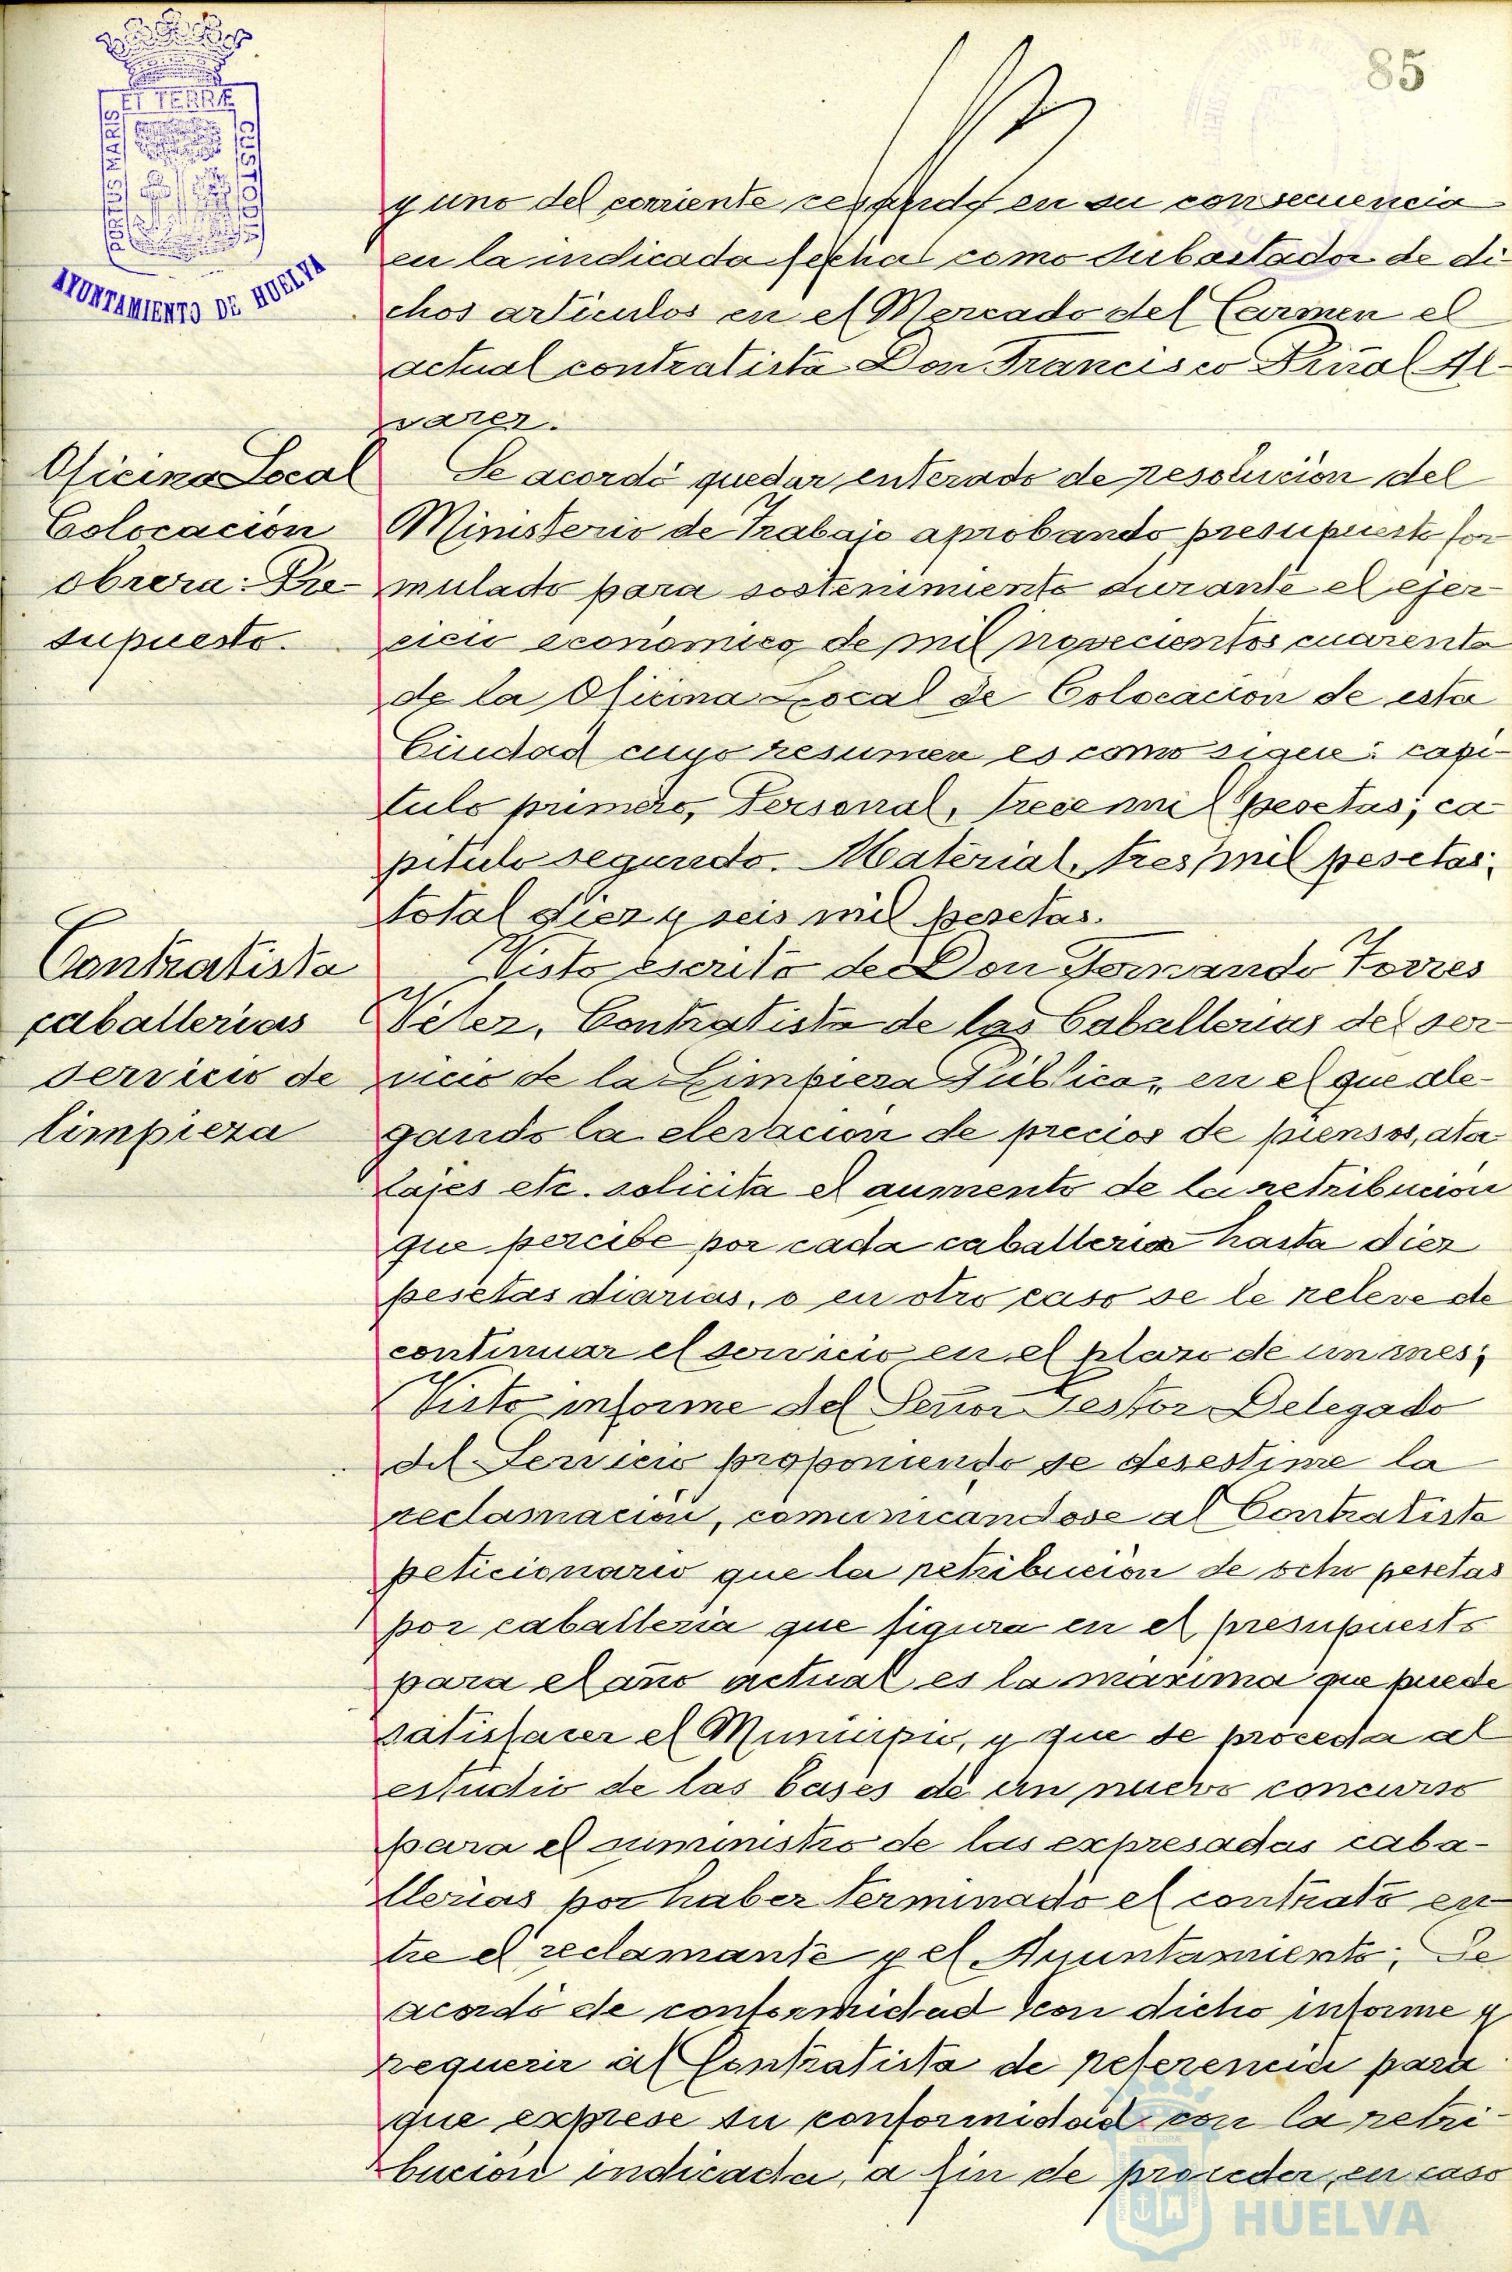 85
ET TERRÆ
PORTUS MARIS
CUSTODIA
AYUNTAMIENTO DE HUELVA
y uno del corriente cesando en su consecuencia
en la indicada fecha como subastador de di-
chos articulos en el Mercado del Carmen el
actual contratista Don Francisco Piñal Al-
varez.
Oficina Local
Colocación
obrera: Pre-
supuesto.
Se acordó quedar enterado de resolución del
Ministerio de Trabajo aprobando presupuesto for
mulado para sostenimiento durante el ejer-
cicio económico de mil novecientos cuarenta
de la Oficina Local de Colocación de esta
Ciudad cuyo resumen es como sigue: capi-
tulo primero, Personal, trece mil pesetas; ca-
pitulo segundo. Material, tres mil pesetas;
total diez y seis mil pesetas.
Contratista
caballerias
servicio de
limpieza
Visto escrito de Don Fernando Torres
Velez, Contratista de las Caballerias del ser-
vicio de la Limpieza Pública, en el que ale-
gando la elevación de precios de piensos, ata-
lajes etc. solicita el aumento de la retribución
que percibe por cada caballeria hasta diez
pesetas diarias, o en otro caso se le releve de
continuar el servicio en el plazo de un mes;
Visto informe del Señor Gestor Delegado
del Servicio proponiendo se desestime la
reclamación, comunicandose al Contratista
peticionario que la retribución de ocho pesetas
por caballeria que figura en el presupuesto
para el año actual es la maxima que puede
satisfacer el Municipio, y que se proceda al
estudio de las bases de un nuevo concurso
para el suministro de las expresadas caba-
llerias por haber terminado el contrato en-
tre el reclamante y el Ayuntamiento; Se
acordó de conformidad con dicho informe y
requerir al Contratista de referencia para
que exprese su conformidad con la retri-
bución indicada, a fin de proceder, en caso
Ayuntamiento de
HUELVA